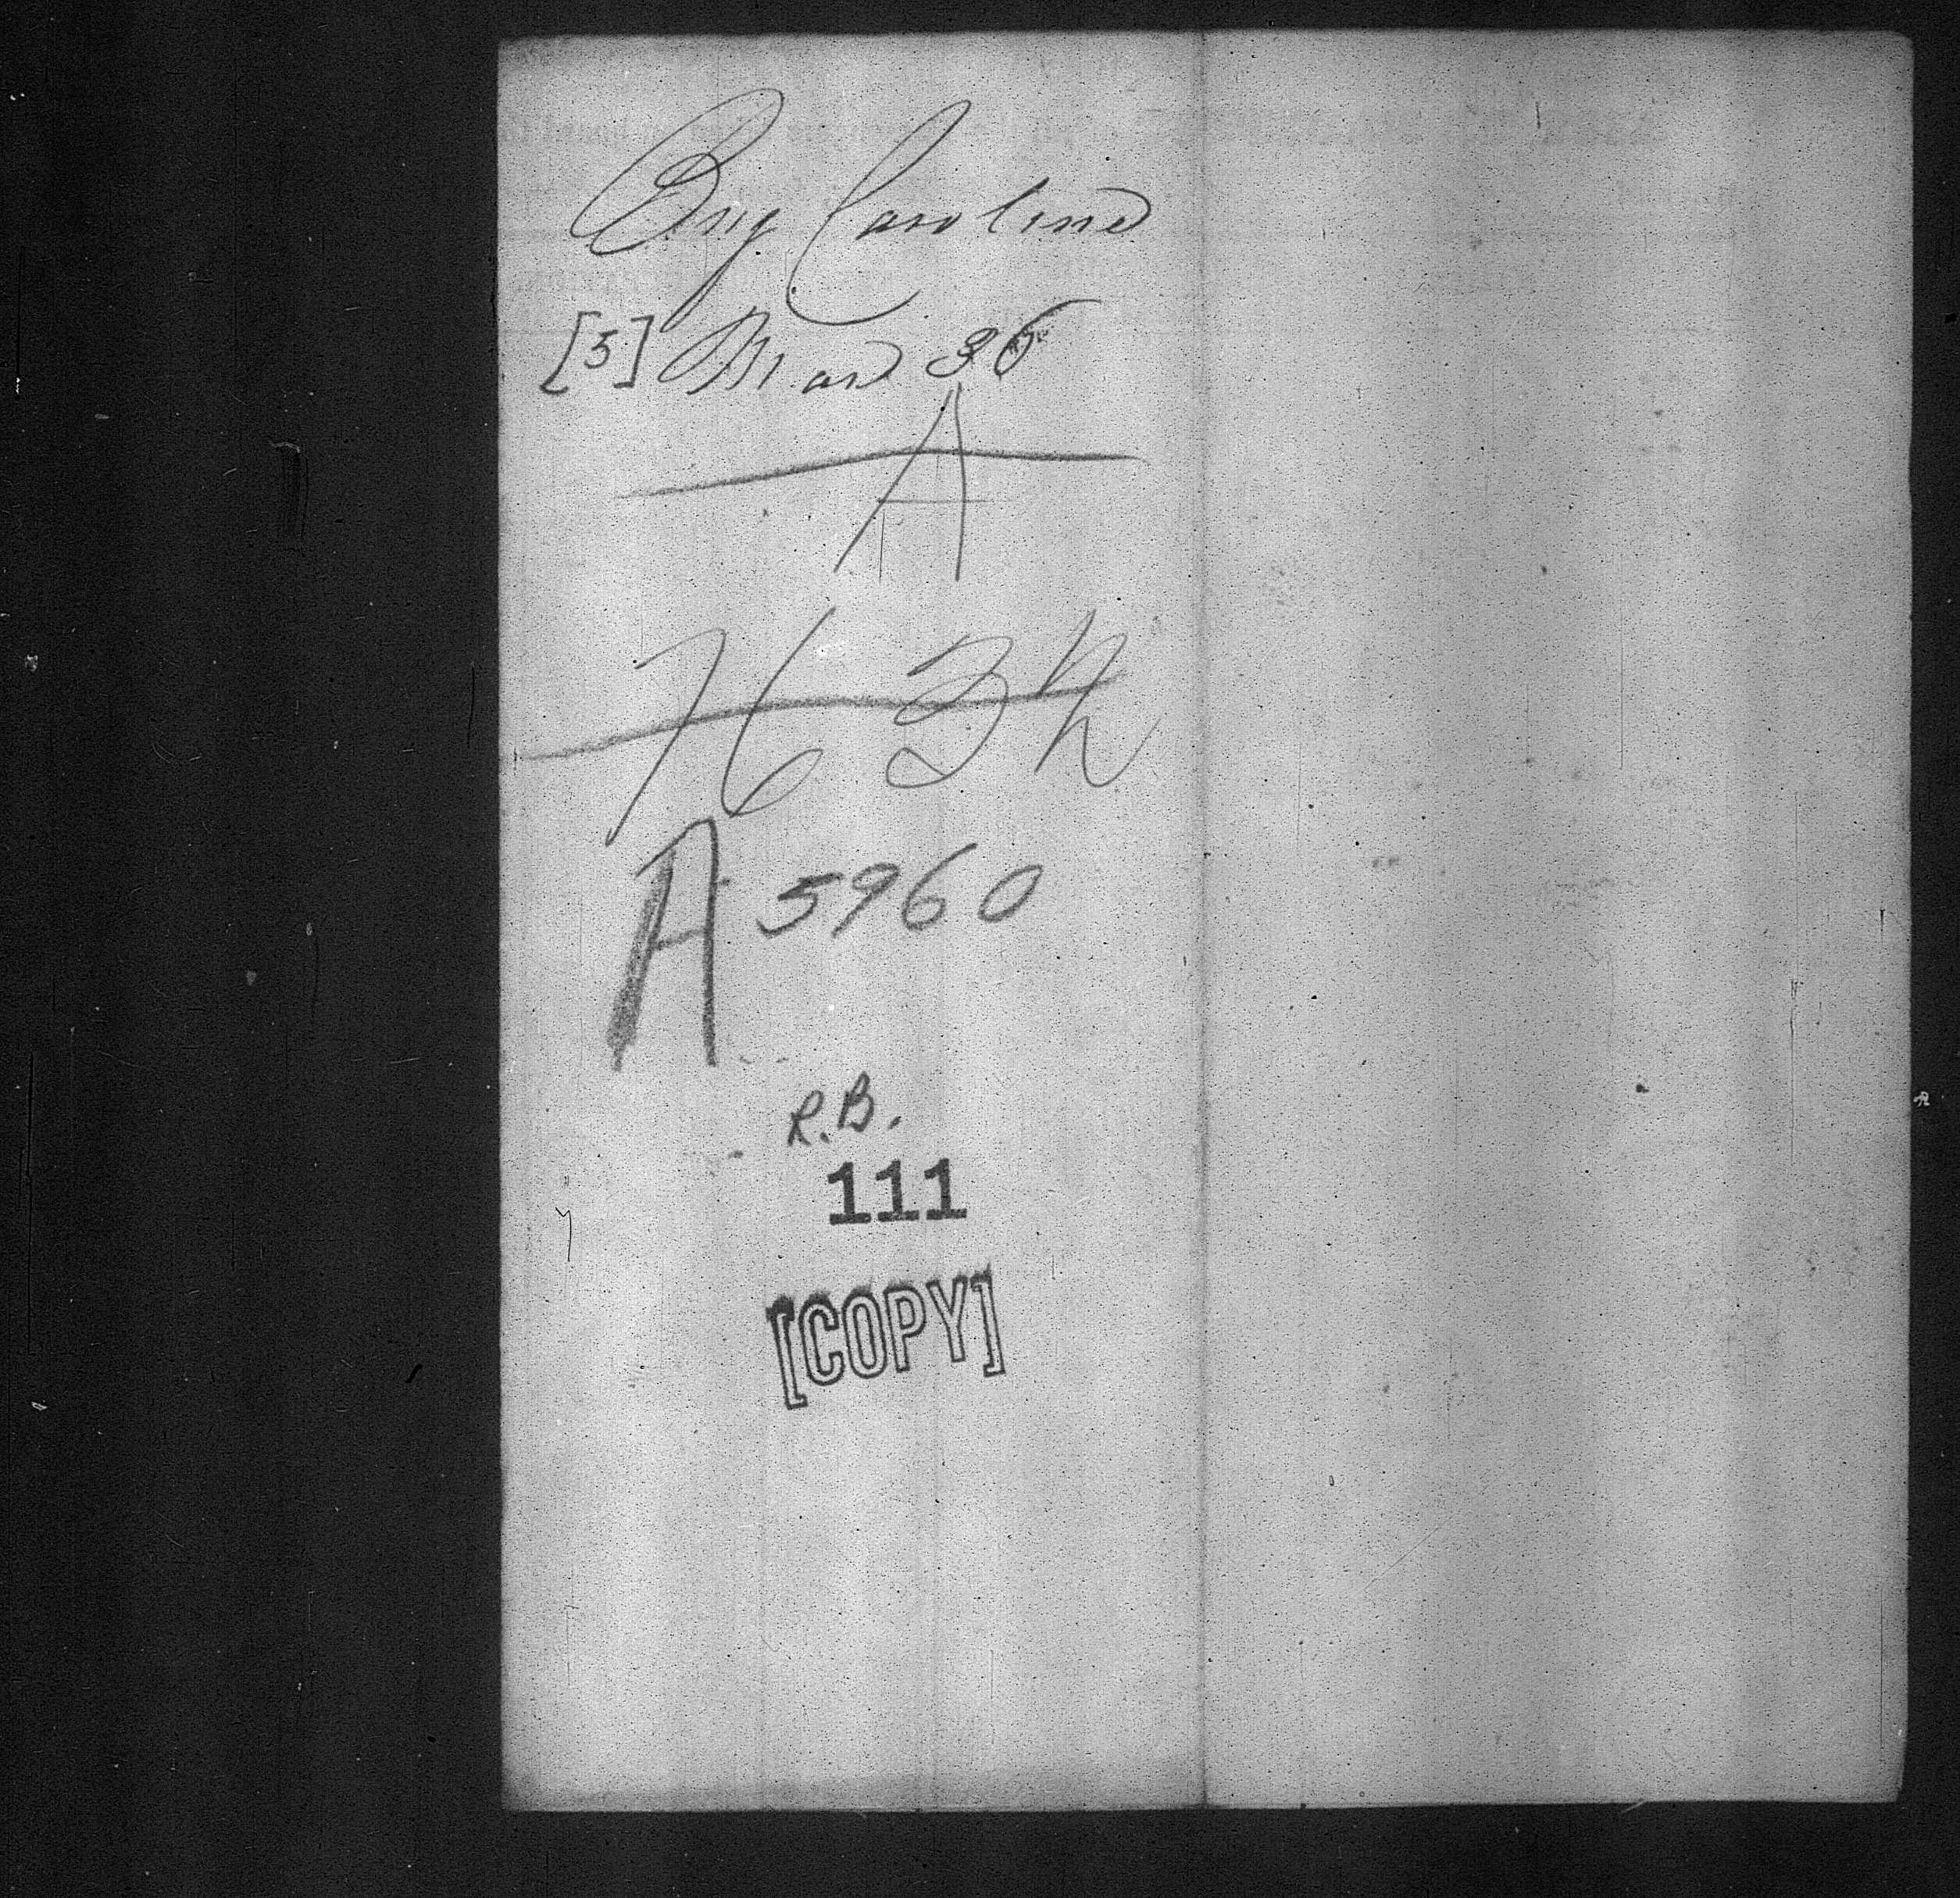 Brig Caroline
[5] Mar 36
A
H 32
A 5960
R.B.
111
[COPY]